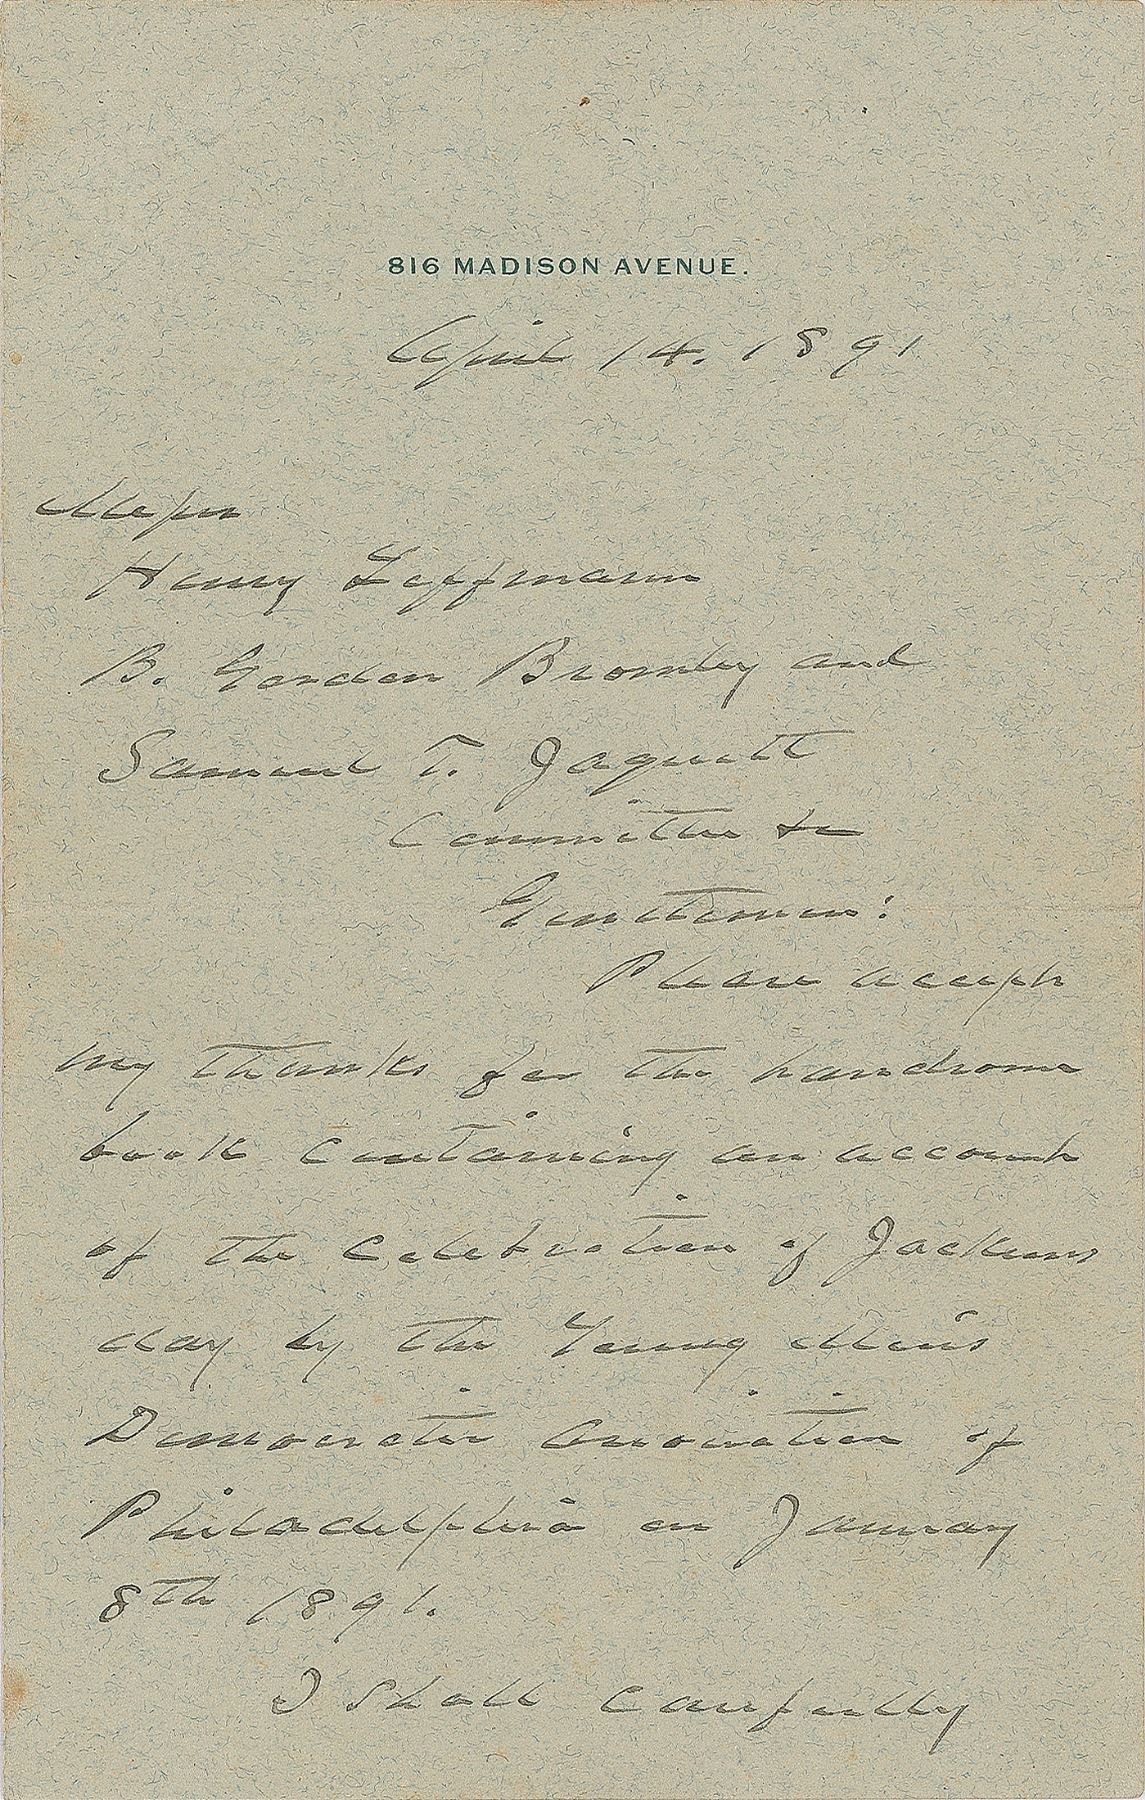 816 MADISON AVENUE.
April 14. 1891
Messrs
Henry Leffmann
B. Gordon Bromley and
Samuel T. Jaquett
Committee &c
Gentlemen:
Please accept
my thanks for the handsome
book containing an account
of the celebration of Jacksons
day by the Young Men's
Democratic Association of
Philadelphia on January
8th 1891.
I shall carefully